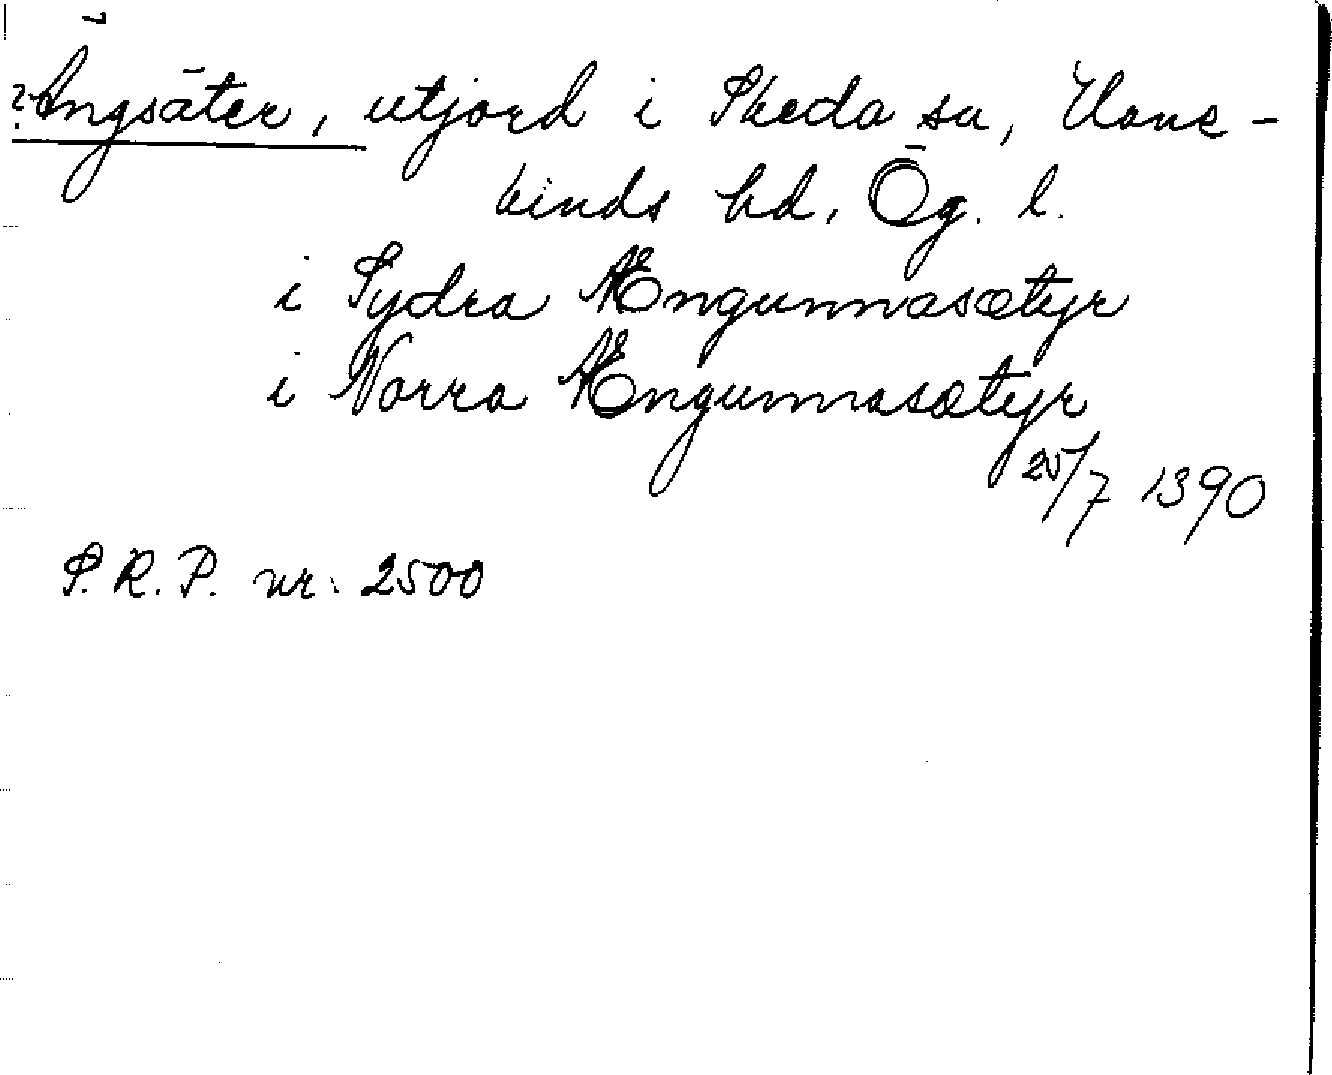 ?Ängsäter, utjord i Skeda sn, Hane-
kinds hd, Ög. l.
i Sydra Ængunnasætyr
i Norra Ængunnasætyr
25/7 1390
S.R.P. nr. 2500